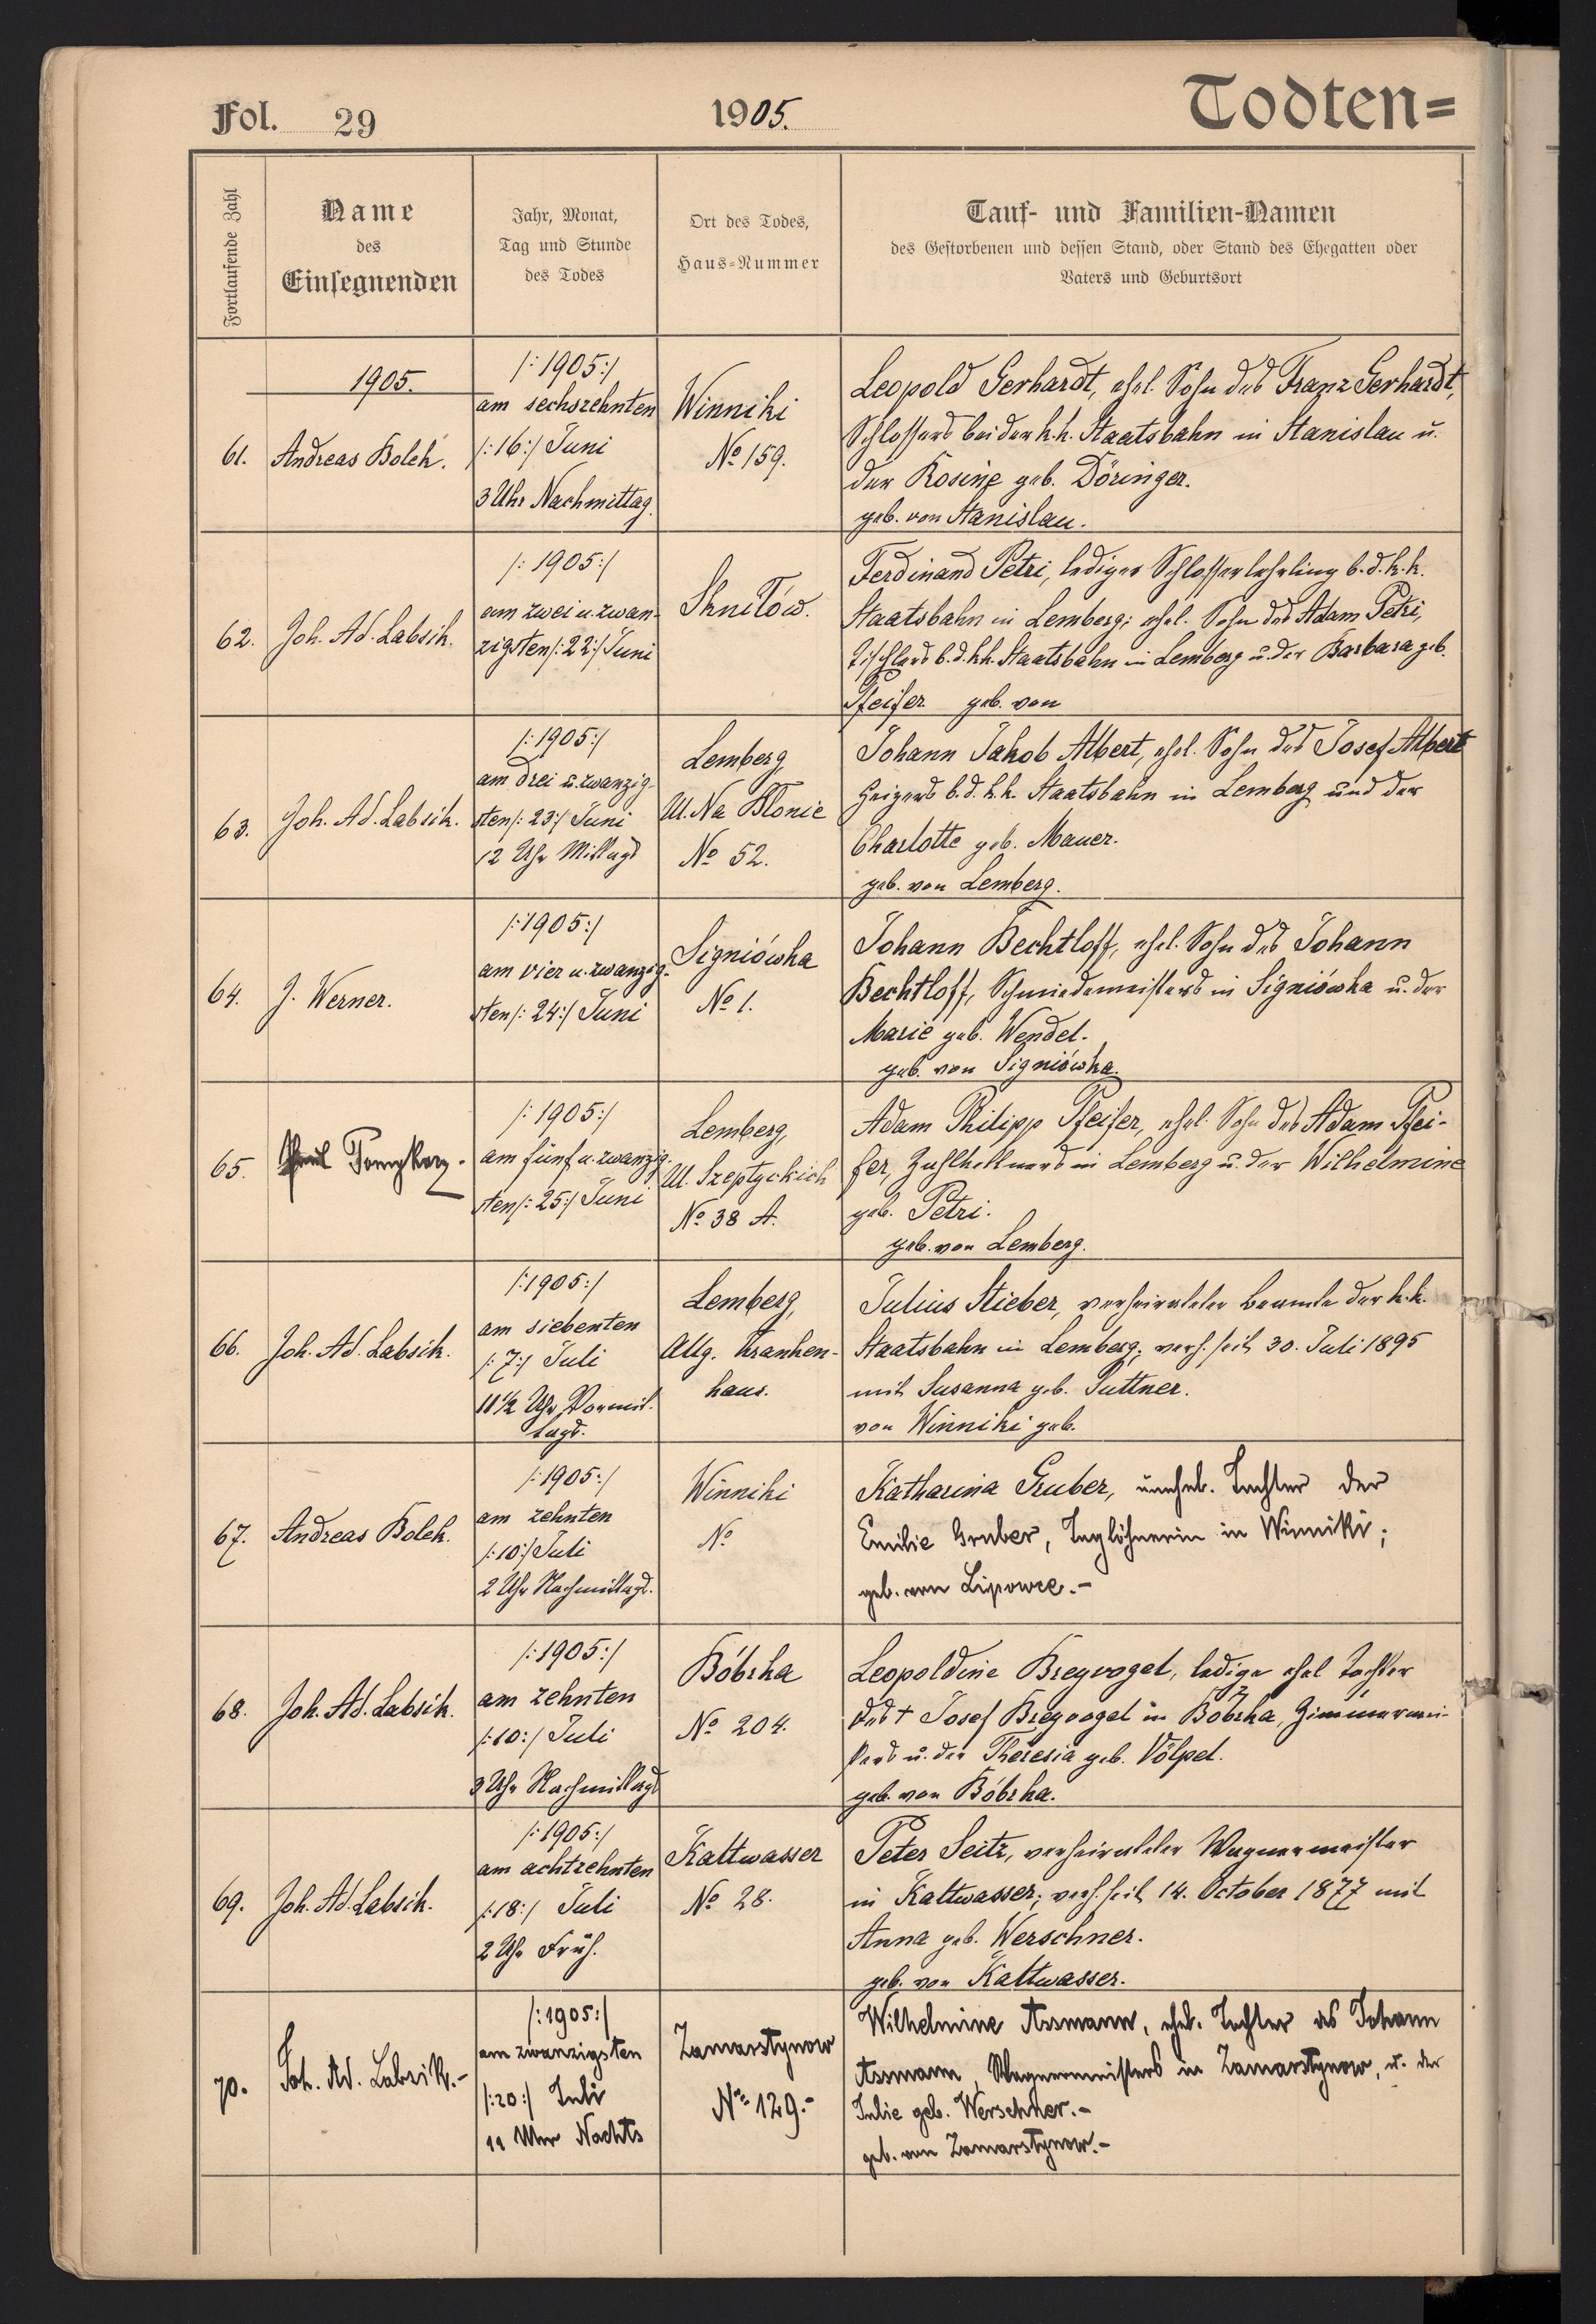 Fol. 29
1905.
Todten=
Fortlaufende Zahl
Name
des
Einsegnenden
Jahr, Monat,
Tag und Stunde
des Todes
Ort des Todes,
Haus-Nummer
Tauf- und Familien-Namen
des Gestorbenen und dessen Stand, oder Stand des Ehegatten oder
Vaters und Geburtsort
1905.
61.
Andreas Bolek.
/:1905:/
am sechszehnten
/:16:/ Juni
3 Uhr Nachmittag.
Winniki
No 159.
Leopold Gerhardt, ehel. Sohn des Franz Gerhardt,
Schlossers bei der k.k. Staatsbahn in Stanislau u.
der Rosine geb. Döringer.
geb. von Stanislau.
62.
Joh. Ad. Labsik.
/:1905:/
am zwei u. zwan-
zigsten /:22:/ Juni
Skniłów.
Ferdinand Petri, lediger Schlosserlehrling b. d. k.k.
Staatsbahn in Lemberg; ehel. Sohn des Adam Petri,
Tischlers b. d. k.k. Staatsbahn in Lemberg u. der Barbara geb.
Pfeifer geb. von
63.
Joh. Ad. Labsik.
/:1905:/
am drei u. zwanzig-
sten /:23:/ Juni
12 Uhr Mittags
Lemberg,
Ul. Na Błonie
No 52.
Johann Jakob Albert, ehel. Sohn des Josef Albert
Heizers b. d. k.k. Staatsbahn in Lemberg und der
Charlotte geb. Mauer.
geb. von Lemberg.
64.
J. Werner.
/:1905:/
am vier u. zwanzig-
sten /:24:/ Juni
Signiówka
No 1.
Johann Bechtloff, ehel. Sohn des Johann
Bechtloff, Schmiedemeisters in Signiówka u. der
Marie geb. Wendel.
geb. von Signiówka.
65.
/:1905:/
am fünf u. zwanzig-
sten /:25:/ Juni
Lemberg,
Ul. Szeptyckich
No 38 A.
Adam Philipp Pfeifer, ehel. Sohn des Adam Pfei-
fer, Zahlkellners in Lemberg u. der Wilhelmine
geb. Petri.
geb. von Lemberg.
66.
Joh. Ad. Labsik.
/:1905:/
am siebenten
/:7:/ Juli
11 1/2 Uhr Vormit-
tags.
Lemberg,
Allg. Kranken-
haus.
Julius Stieber, verheirateter Beamte der k.k.
Staatsbahn in Lemberg; verh. seit 30. Juli 1895
mit Susanna geb. Puttner.
von Winniki geb.
67.
Andreas Bolek.
/:1905:/
am zehnten
/:10:/ Juli
2 Uhr Nachmittags.
Winniki
No
Katharina Gruber, unehel. Tochter der
Emilie Gruber, Taglöhnerin in Winniki;
geb. von Lipowce.-
68.
Joh. Ad. Labsik.
/:1905:/
am zehnten
/:10:/ Juli
3 Uhr Nachmittags
Bóbrka
No 204.
Leopoldine Breyvogel, ledige ehel. Tochter
des † Josef Breyvogel in Bóbrka, Zimmermei-
sters u. der Theresia geb. Völpel.
geb. von Bóbrka.
69.
Joh. Ad. Labsik.
/:1905:/
am achtzehnten
/:18:/ Juli
2 Uhr Früh.
Kaltwasser
No 28.
Peter Seitz, verheirateter Wagnermeister
in Kaltwasser; verh. seit 14. October 1877 mit
Anna geb. Werschner.
geb. von Kaltwasser.
70.
Joh. Ad. Labsik.-
/:1905:/
am zwanzigsten
/:20:/ Juli
11 Uhr Nachts
Zamarstynow
No 129.-
Wilhelmine Assmann, ehel. Tochter des Johann
Assmann, Wagnermeisters in Zamarstynow, u. der
Julie geb. Werschner.-
geb. von Zamarstynow.-